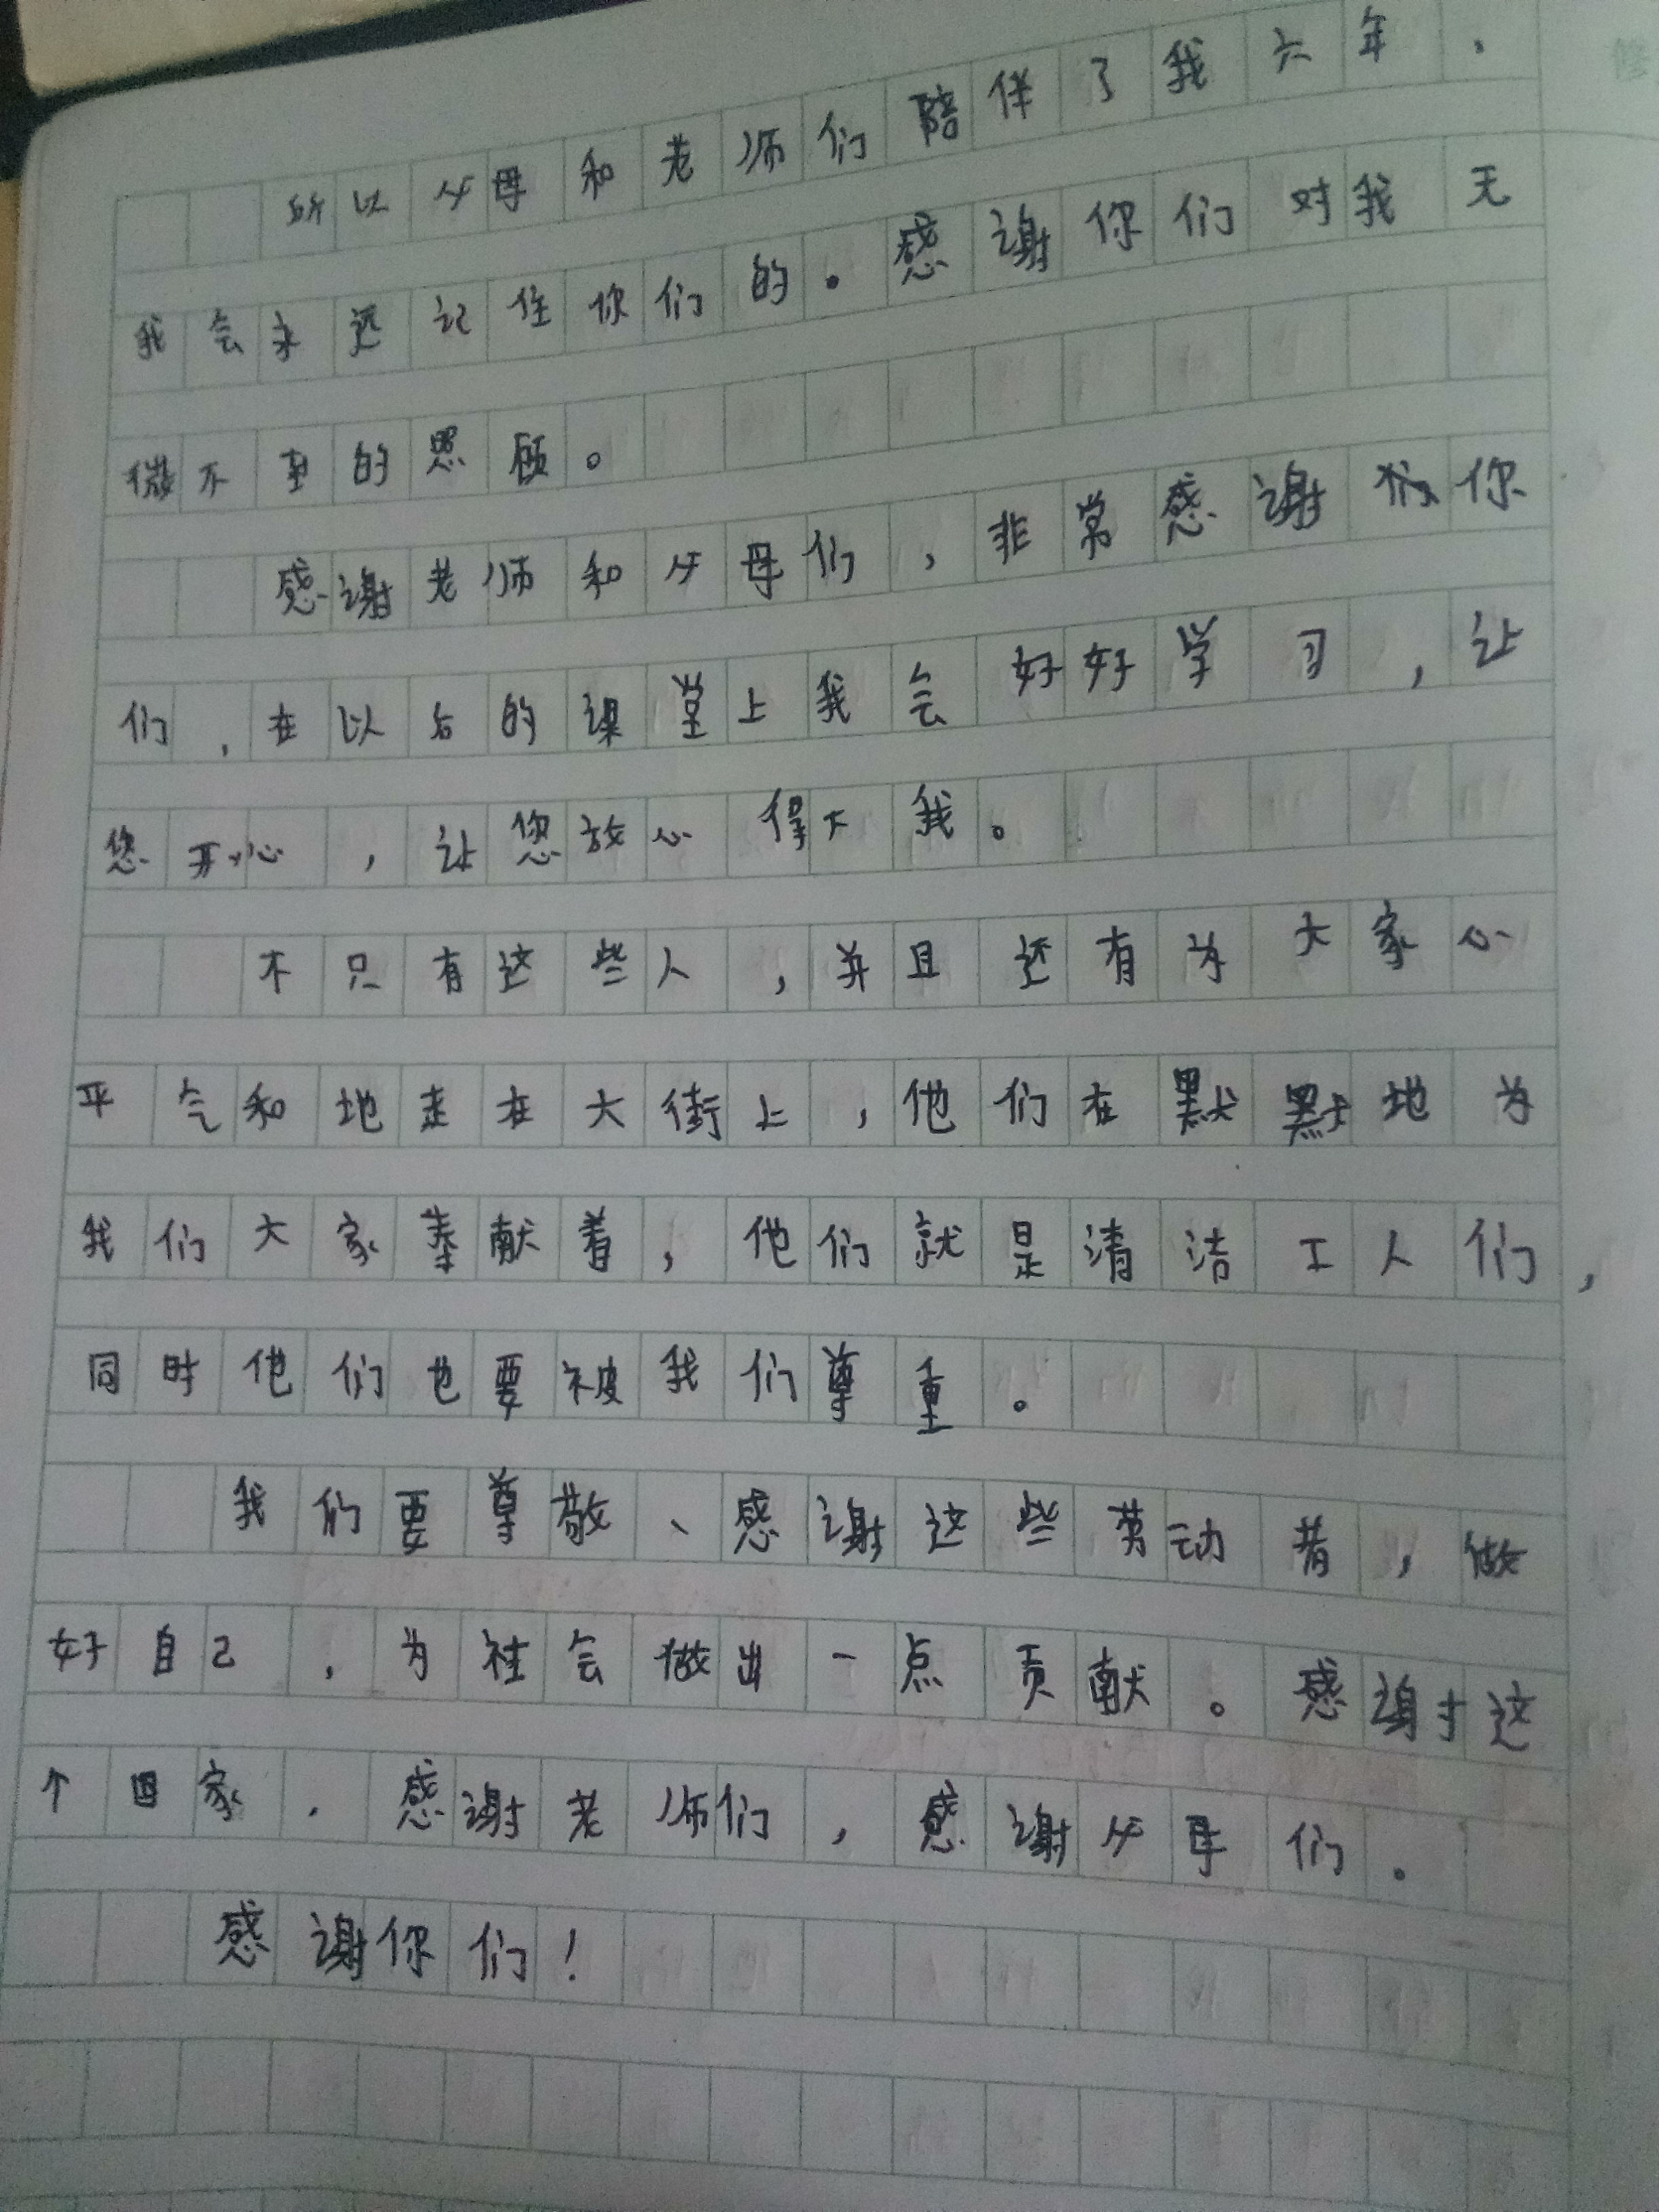 所以父母和老师们陪伴了我六年，
我会永远记住你们的。感谢你们对我无
微不至的恩顾。
感谢老师和父母们，非常感谢你
们，在以后的课堂上我会好好学习，让
您开心，让您放心得下我。
不只有这些人，并且还有为大家心
平气和地走在大街上，他们在默默地为
我们大家奉献着，他们就是清洁工人们，
同时他们也要被我们尊重。
我们要尊敬、感谢这些劳动者，做
好自己，为社会做出一点贡献。感谢这
个国家，感谢老师们，感谢父母们。
感谢你们！